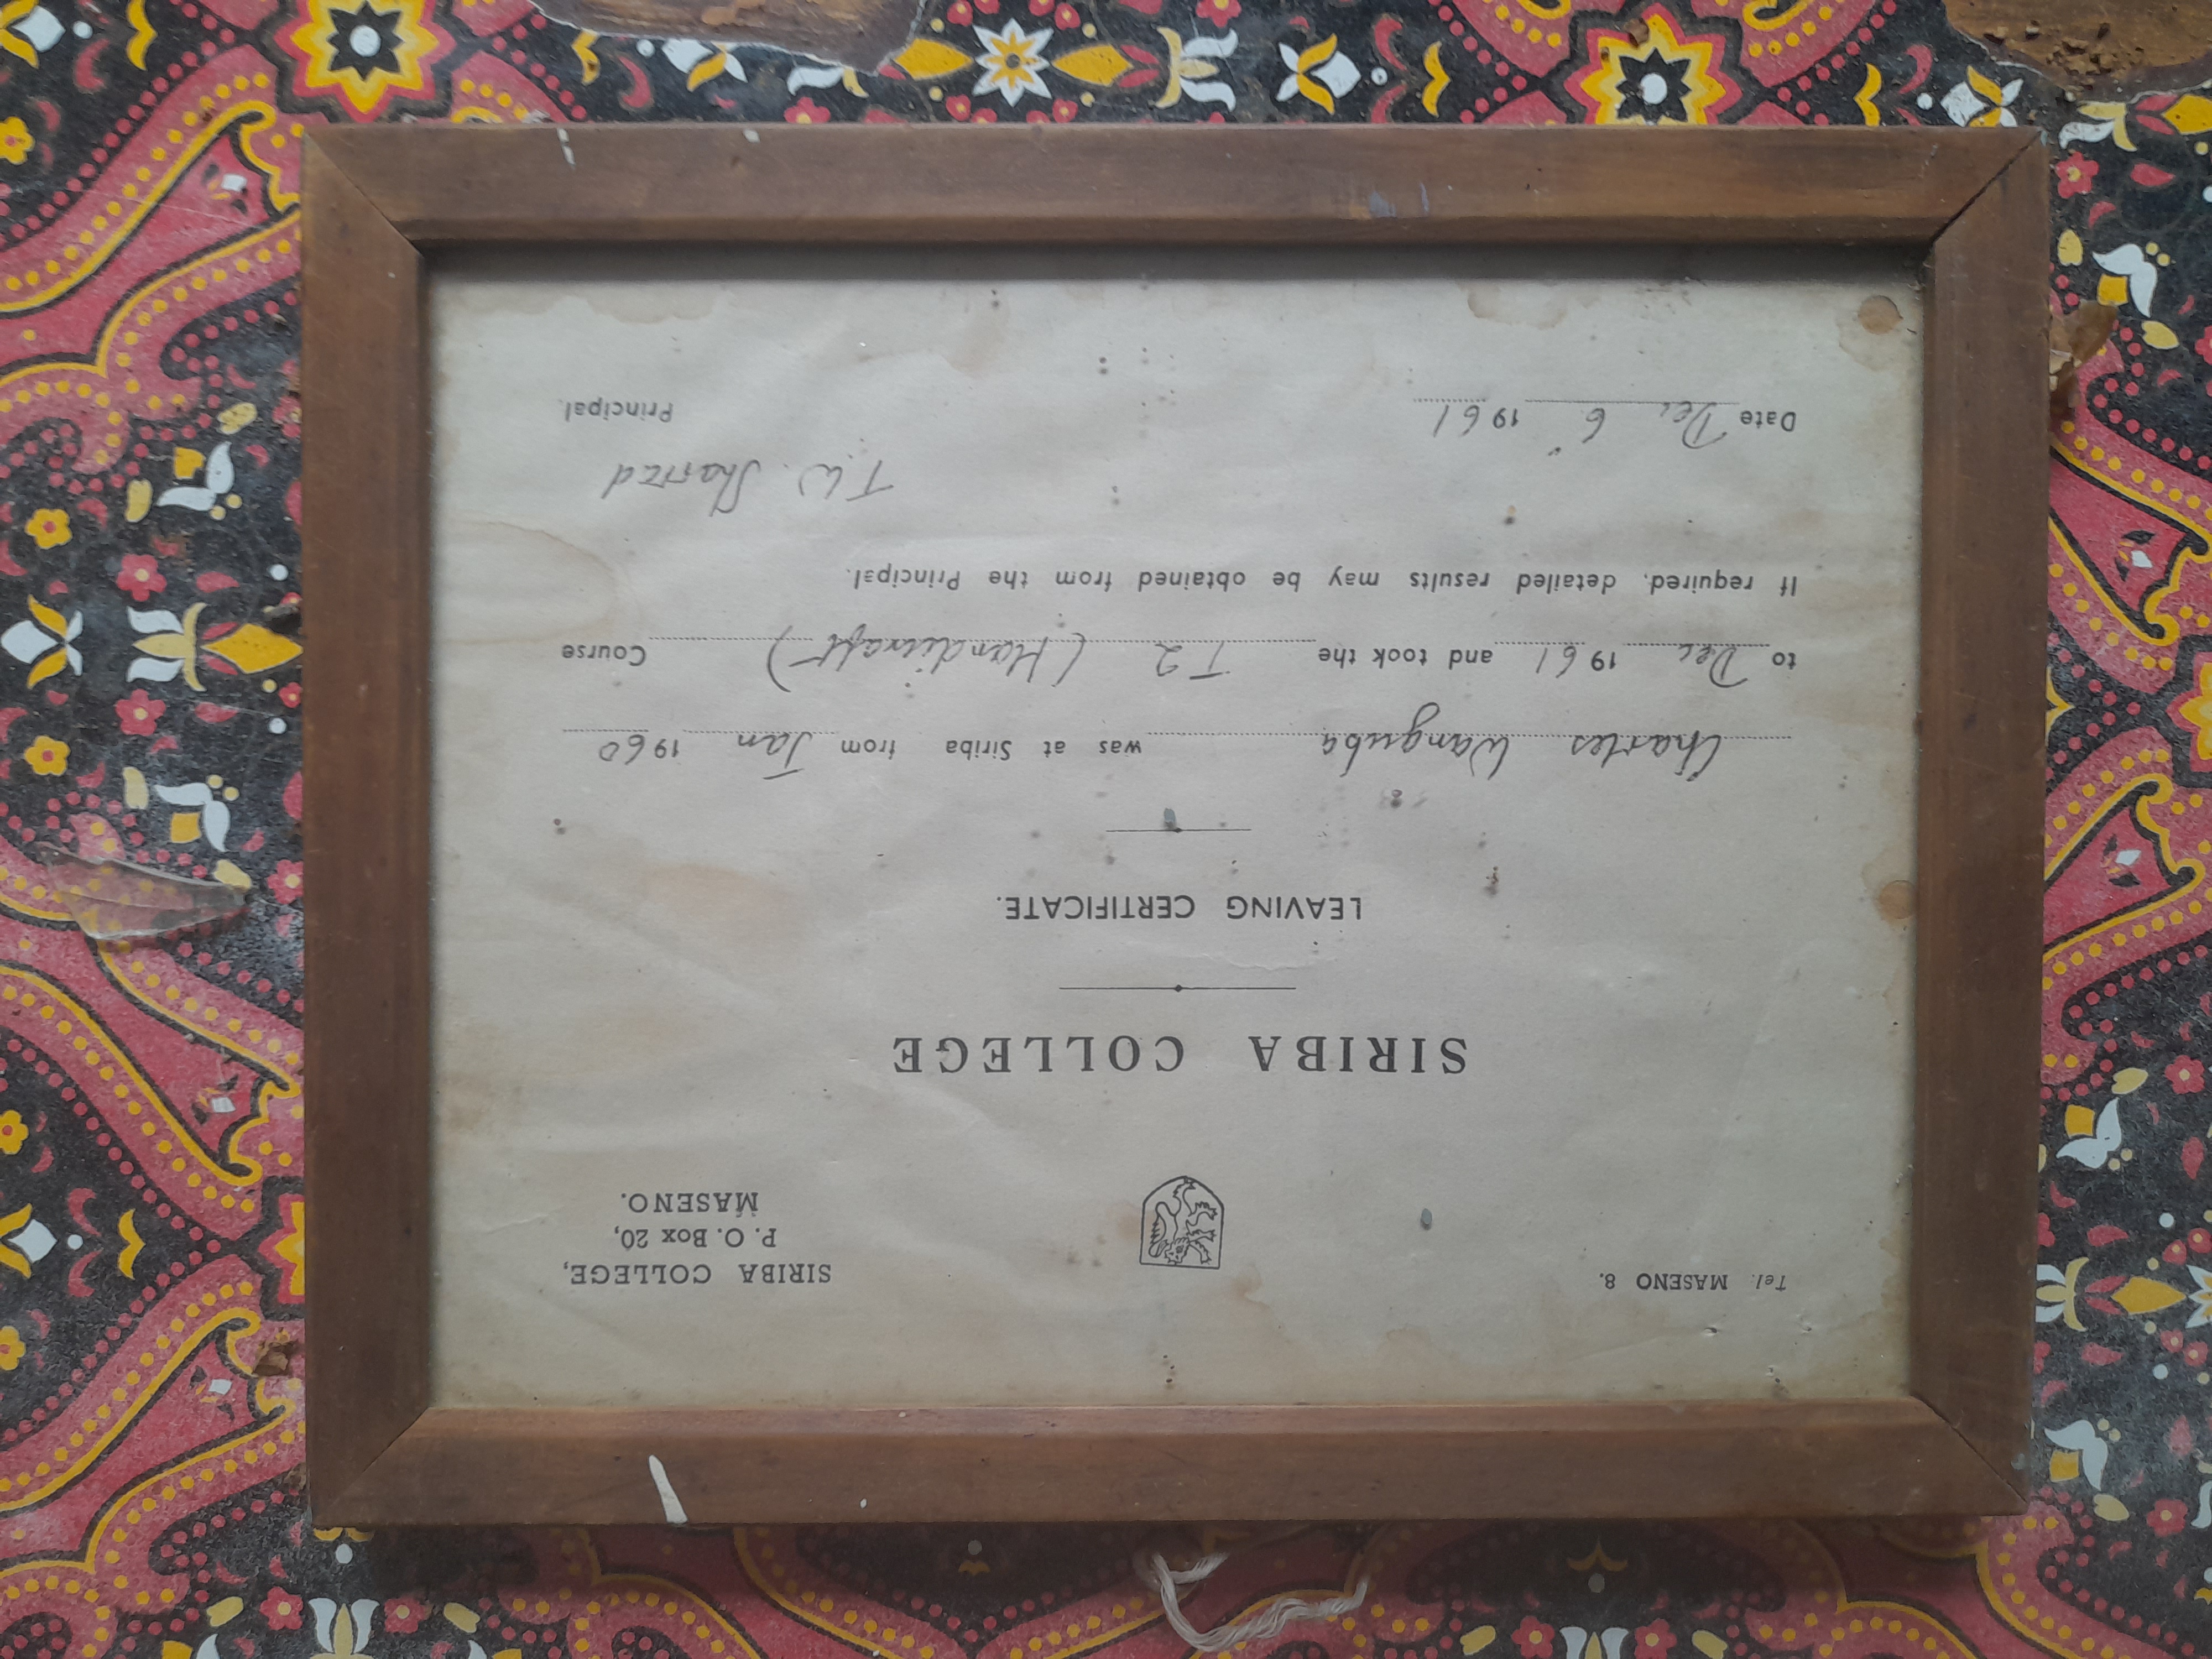 Tel. MASENO 8.
SIRIBA COLLEGE,
P. O. Box 20,
MASENO.
SIRIBA COLLEGE
LEAVING CERTIFICATE.
Charles Wanguba was at Siriba from Jan 1960
to Dec 1961 and took the T2 (Handicraft) Course
If required, detailed results may be obtained from the Principal.
T.W. Sharrad
Date Dec 6 1961
Principal.